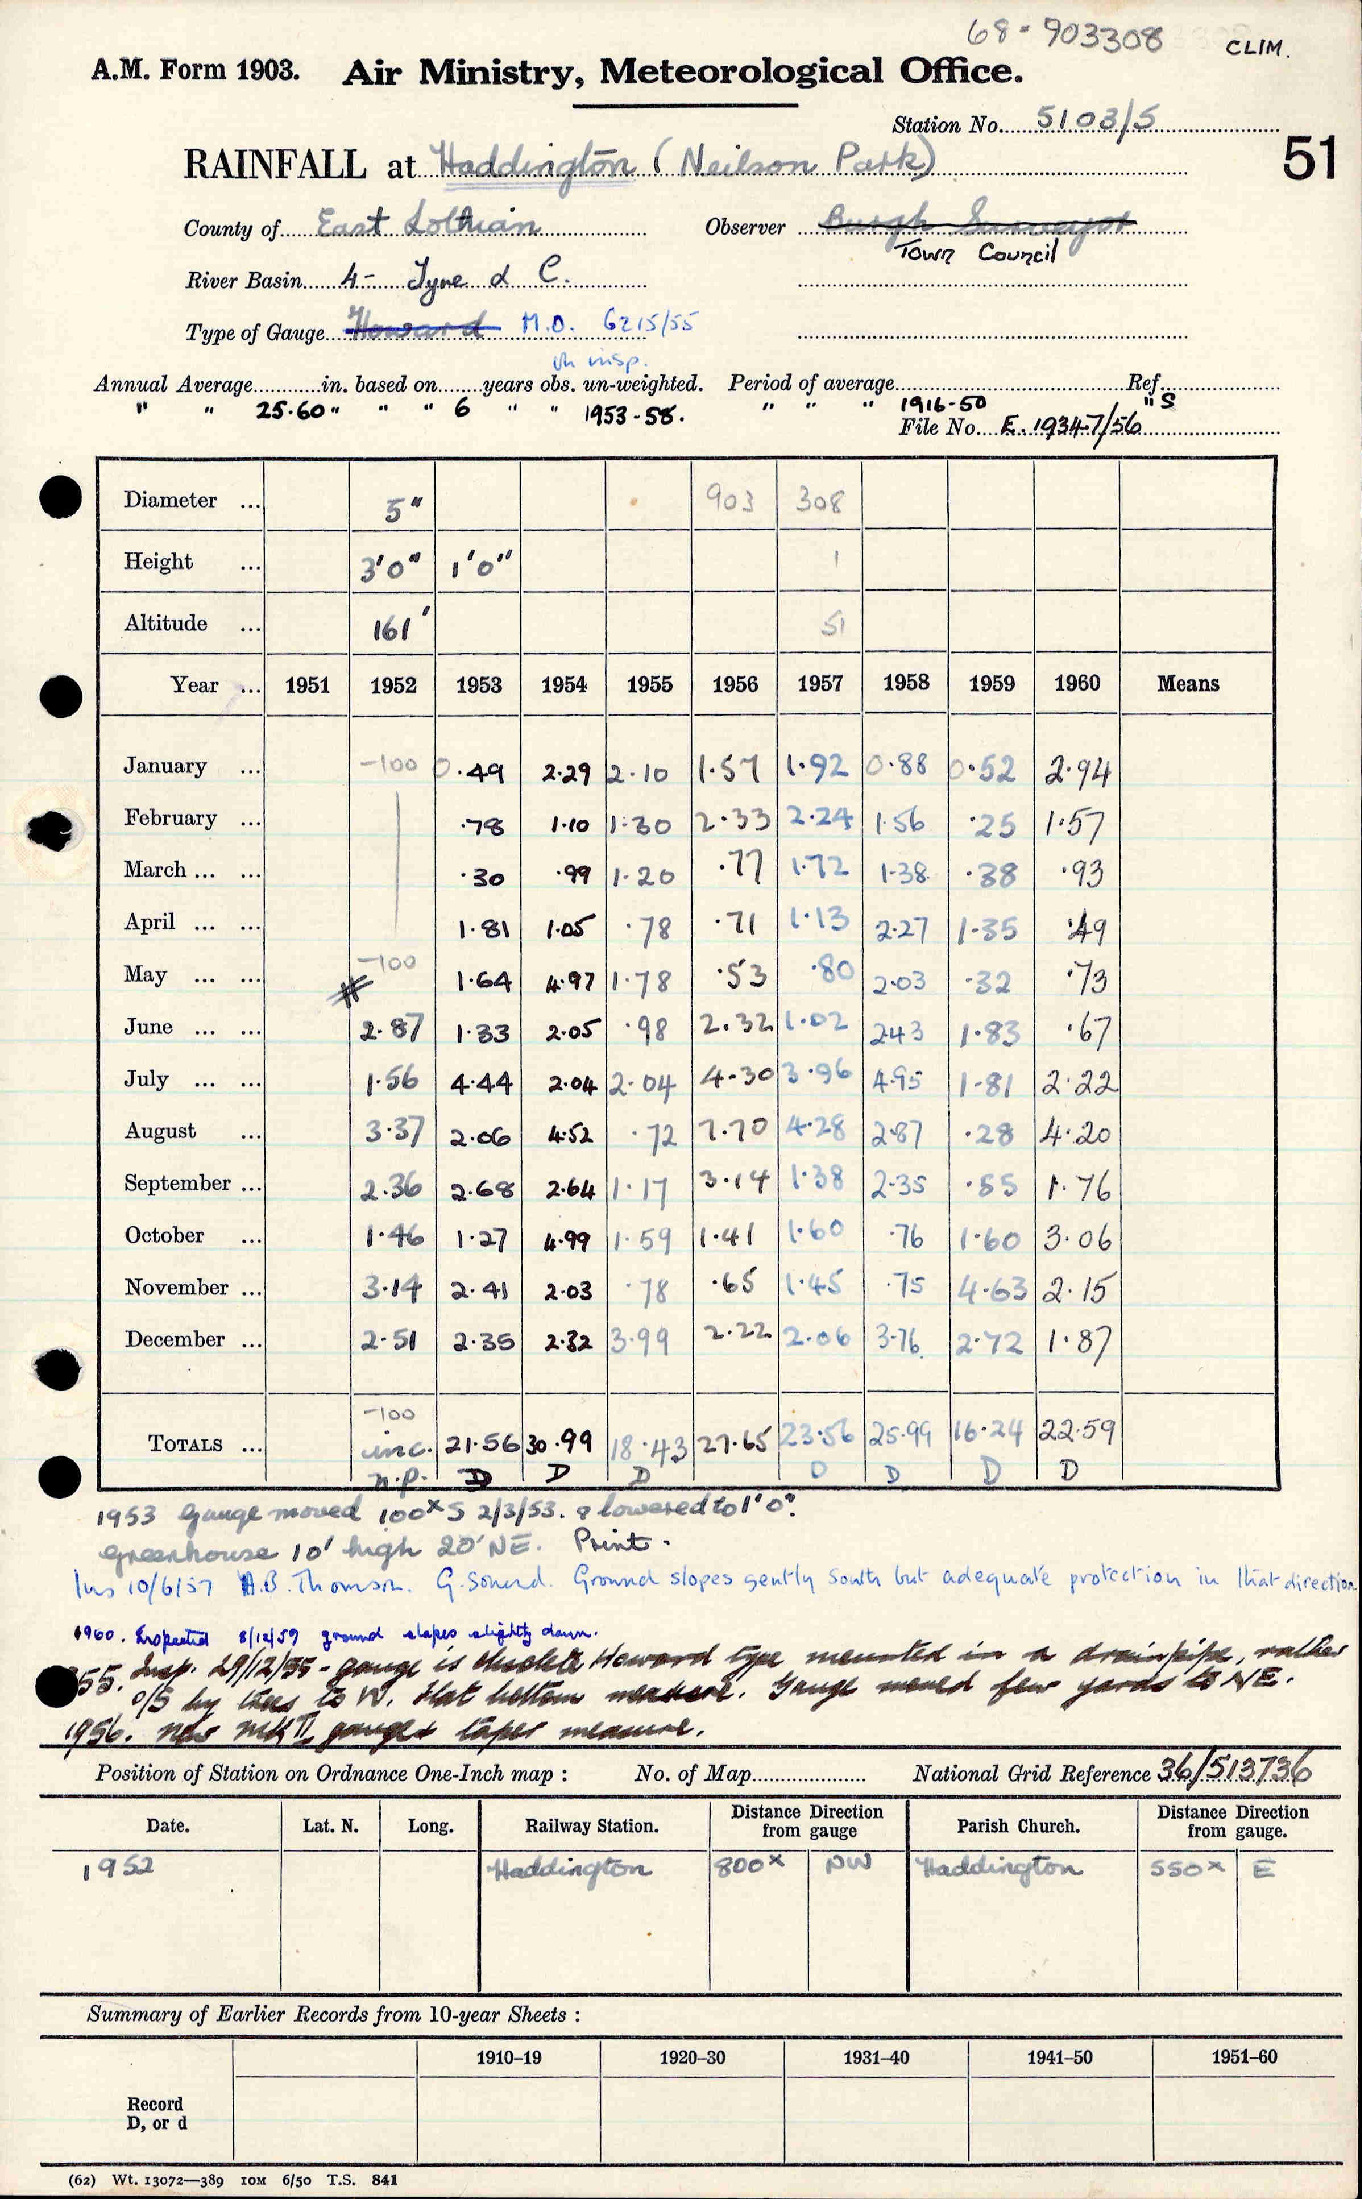 68-903308
CLIM.
A.M. Form 1903. Air Ministry, Meteorological Office.
Station No. 5103/5
51
RAINFALL at Haddington (Neilson Park)
County of East Lothian Observer Burgh Surveyor
Town Council
River Basin 4- Tyne & C.
Type of Gauge Howard M.O. 6215/55
on insp.
Annual Average in. based on years obs. un-weighted. Period of average Ref.
" " 25.60 " " " 6 " " 1953-58. " " " 1916-50 "S
File No. E.19347/56
Diameter ... 5" 903 308
Height ... 3'0" 1'0" 1
Altitude ... 161' 51
Year ... 1951 1952 1953 1954 1955 1956 1957 1958 1959 1960 Means
January ... -100 0.49 2.29 2.10 1.57 1.92 0.88 0.52 2.94
February ... .78 1.10 1.30 2.33 2.24 1.56 .25 1.57
March ... ... .30 .99 1.20 .77 1.72 1.38 .38 .93
April ... ... 1.81 1.05 .78 .71 1.13 2.27 1.35 .49
May ... ... -100 1.64 4.97 1.78 .53 .80 2.03 .32 .73
June ... ... 2.87 1.33 2.05 .98 2.32 1.02 2.43 1.83 .67
July ... ... 1.56 4.44 2.04 2.04 4.30 3.96 4.95 1.81 2.22
August ... 3.37 2.06 4.52 .72 7.70 4.28 2.87 .28 4.20
September ... 2.36 2.68 2.64 1.17 3.14 1.38 2.35 .55 1.76
October ... 1.46 1.27 4.99 1.59 1.41 1.60 .76 1.60 3.06
November ... 3.14 2.41 2.03 .78 .65 1.45 .75 4.63 2.15
December ... 2.51 2.35 2.32 3.99 2.22 2.06 3.76 2.72 1.87
-100
TOTALS ... inc. 21.56 30.99 18.43 27.65 23.56 25.99 16.24 22.59
n.p. D D D D D D D
1953 Gauge moved 100x S 2/3/53. & lowered to 1'0".
Greenhouse 10' high 20' NE. Print.
Ins 10/6/57 A.B. Thomson. G. Sound. Ground slopes gently South but adequate protection in that direction
1960. Inspected 8/12/59 ground slopes slightly down.
55. Insp. 29/12/55 - gauge is obsolete Howard type mounted in a drainpipe, rather
o/S by trees to W. Flat bottom measure. Gauge moved few yards to NE.
1956. New MK II gauge & taper measure.
Position of Station on Ordnance One-Inch map : No. of Map National Grid Reference 36/513736
Date. Lat. N. Long. Railway Station. Distance Direction from gauge Parish Church. Distance Direction from gauge.
1952 Haddington 800x NW Haddington 550x E
Summary of Earlier Records from 10-year Sheets :
1910-19 1920-30 1931-40 1941-50 1951-60
Record
D, or d
(62) Wt. 13072—389 10M 6/50 T.S. 841